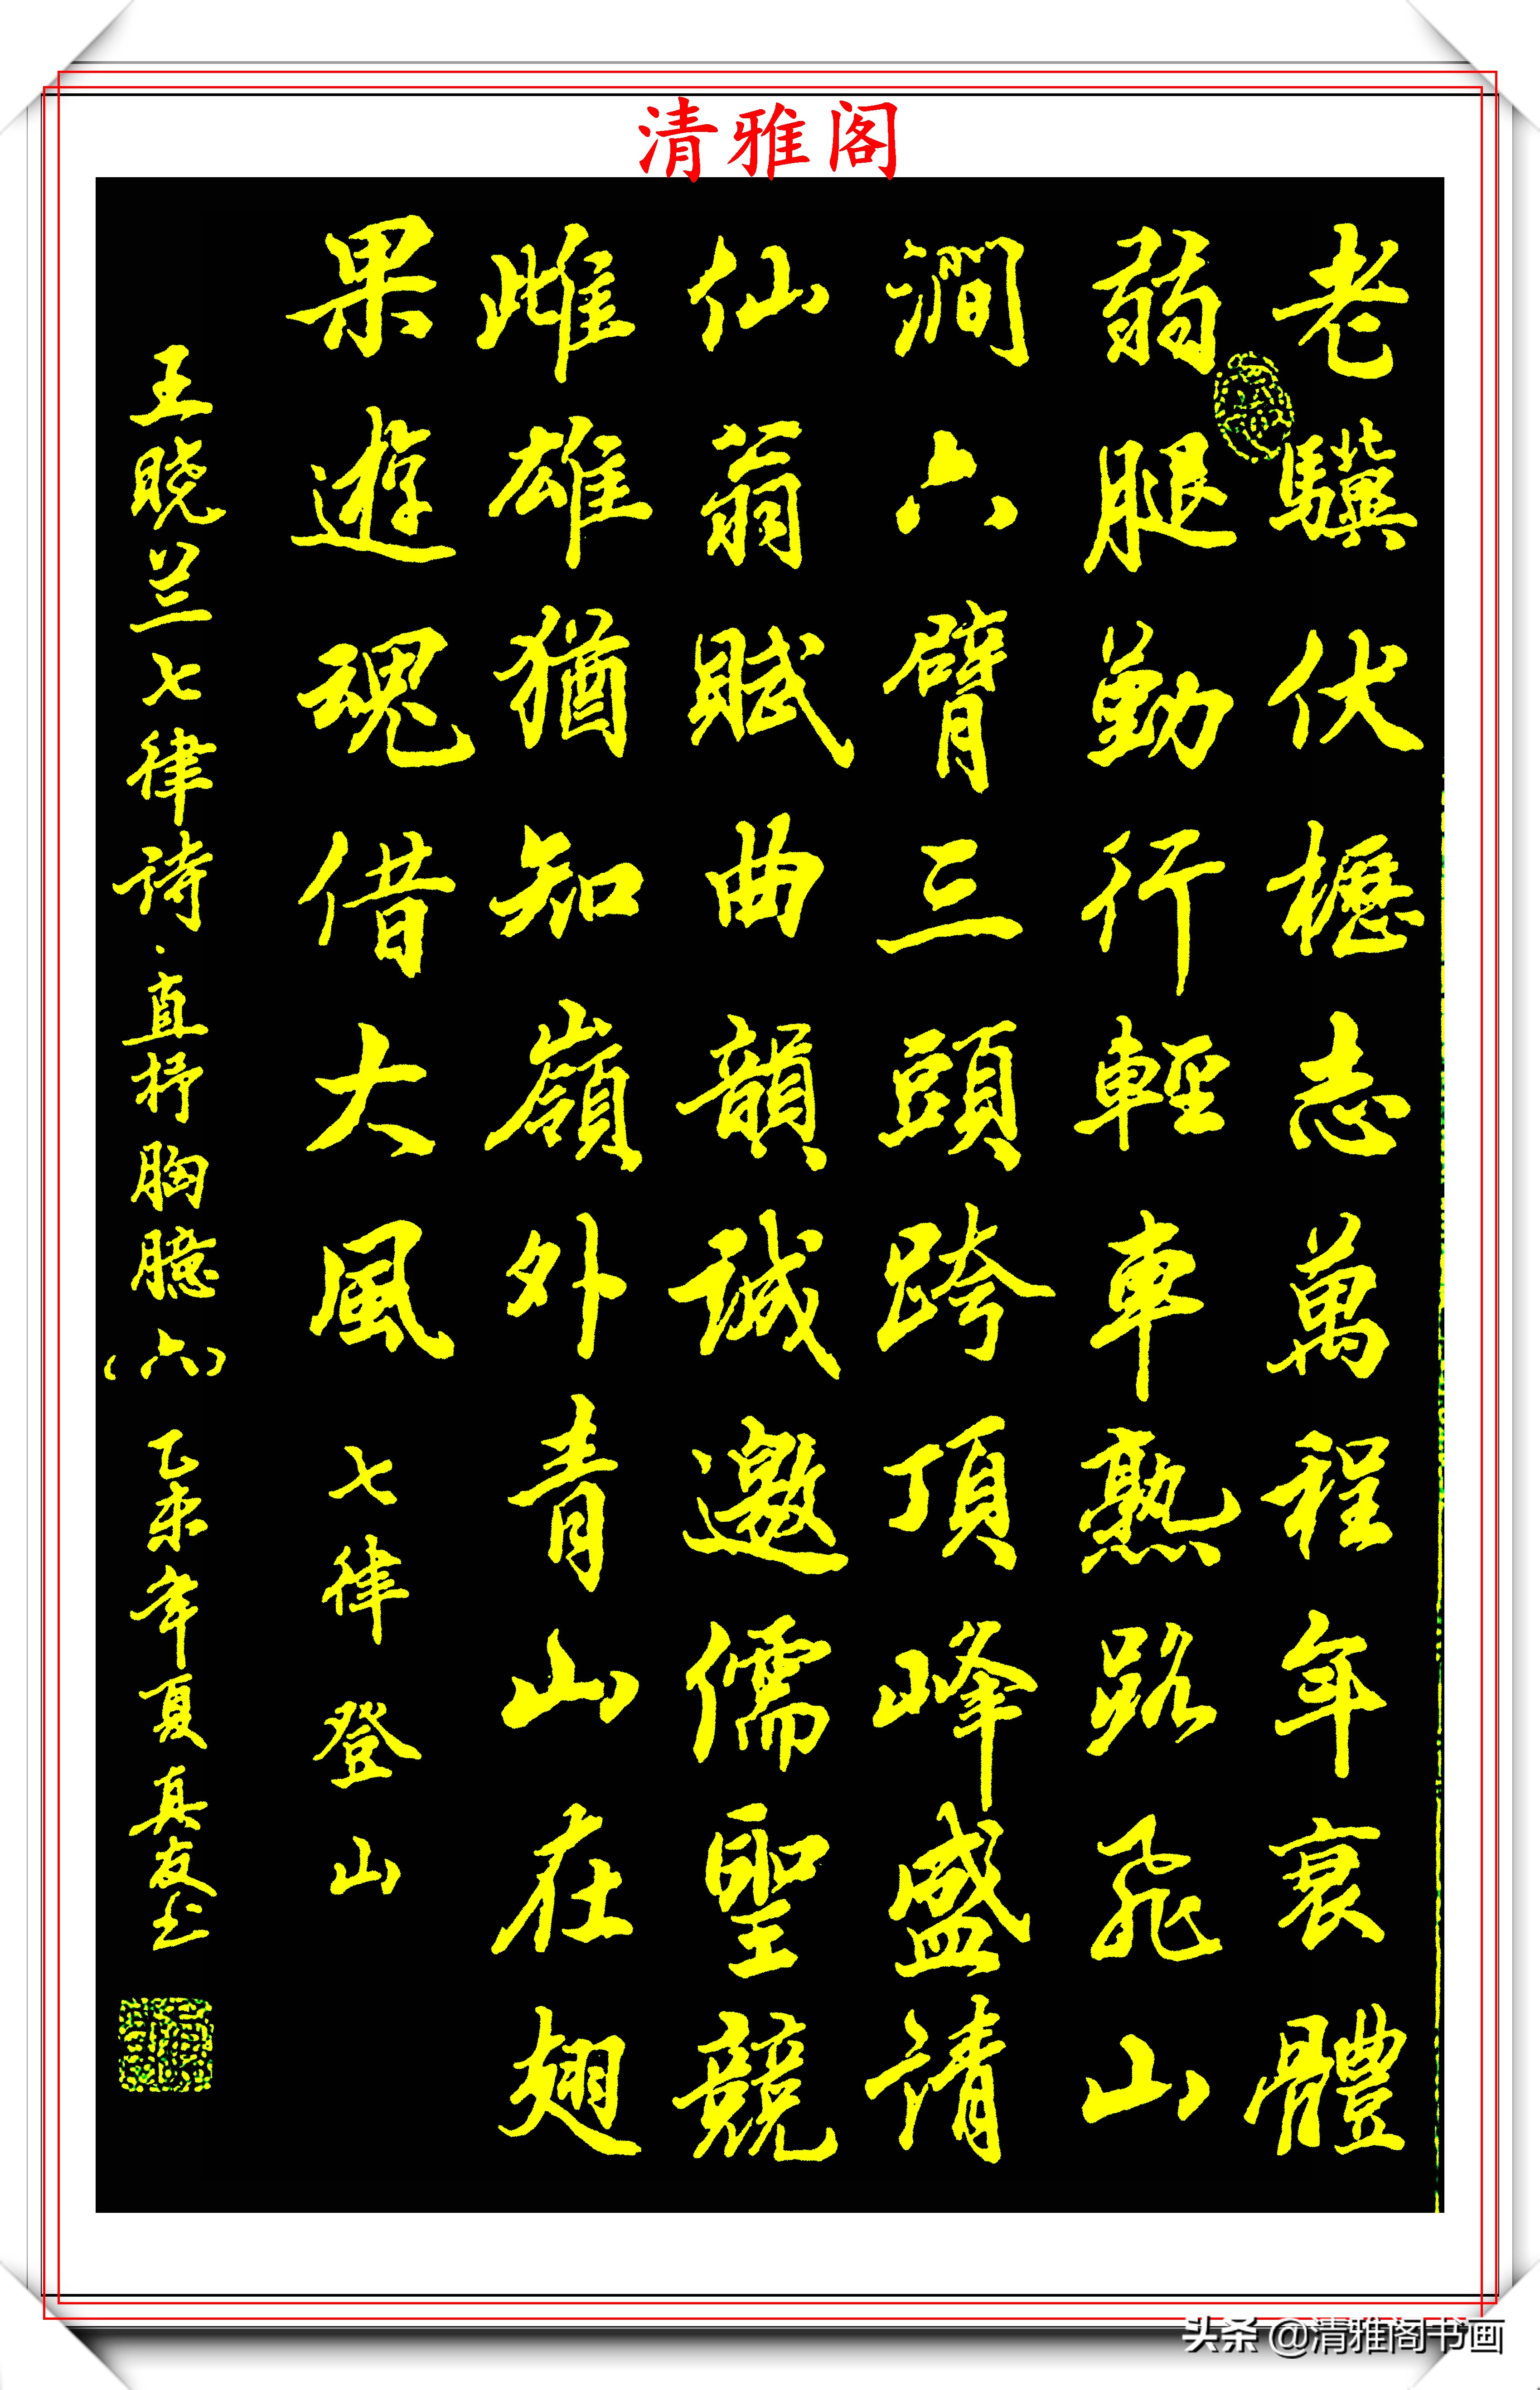 清雅阁
老驥伏櫪志萬程年衰體
弱腿勤行輕車熟路飛山
澗六臂三頭跨頂峰盛请
仙翁賦曲韻誠邀儒聖競
雌雄猶知嶺外青山在翅
果遊魂借大風 七律 登山
王晓兰七律诗·直抒胸臆(六) 乙未年夏真友书
头条 @清雅阁书画